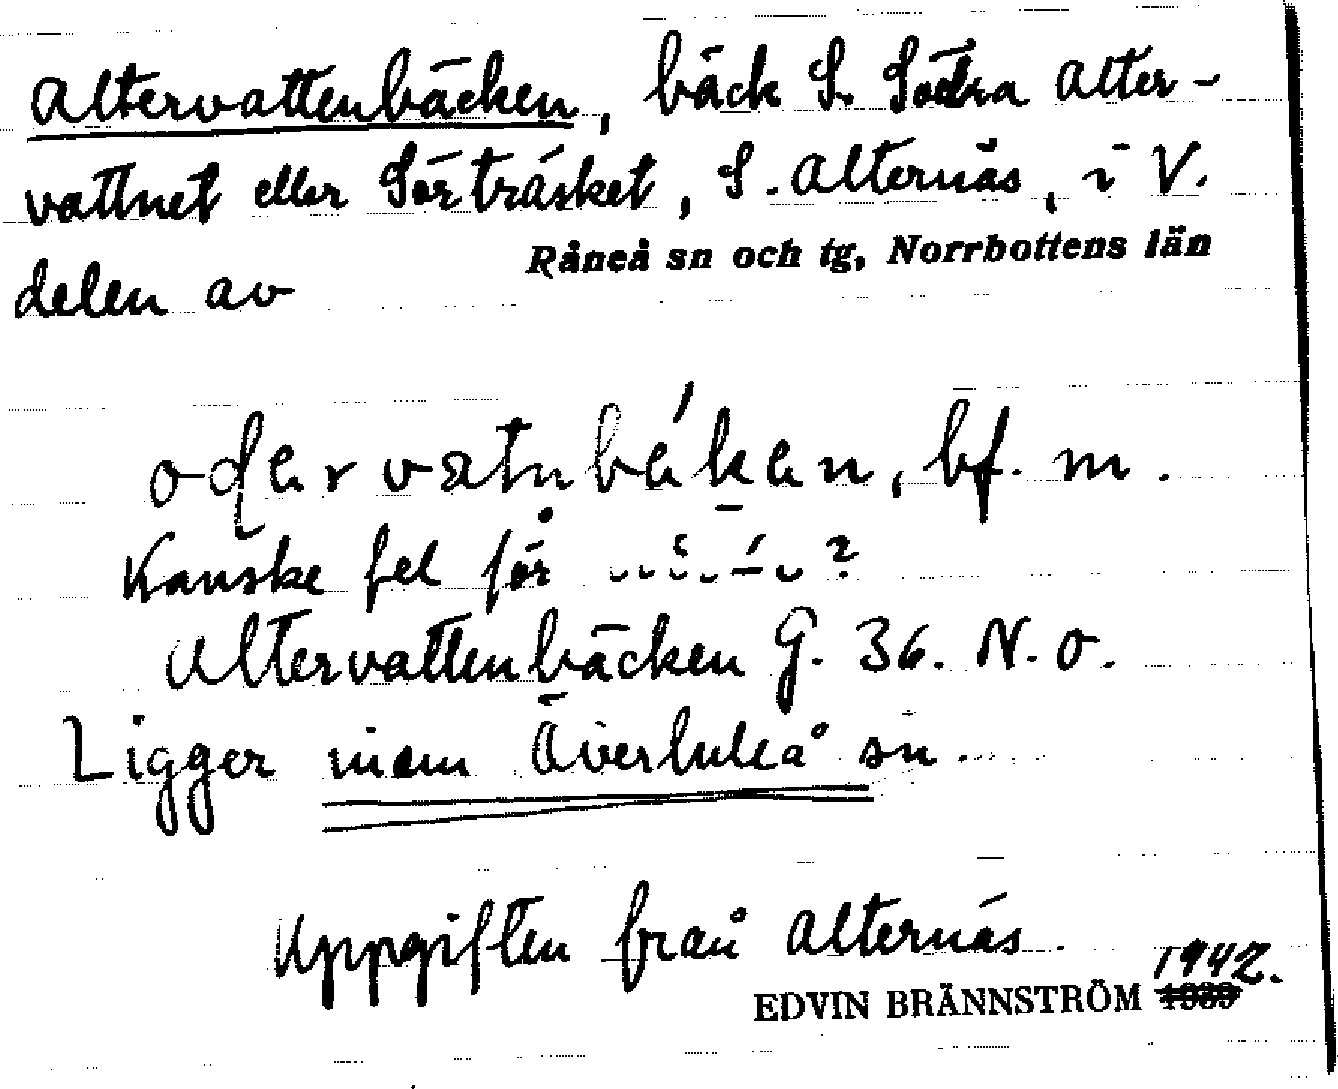 Altervattenbäcken, bäck S. Södra Alter-
vattnet eller Sörträsket, S. Alternäs, i V.
delen av Råneå sn och tg, Norrbottens län
bf. m.
Kanske fel för
Altervattenbäcken G. 36. N. O.
Ligger inom Överluleå sn.
Uppgiften från Alternäs
EDVIN BRÄNNSTRÖM 1942.